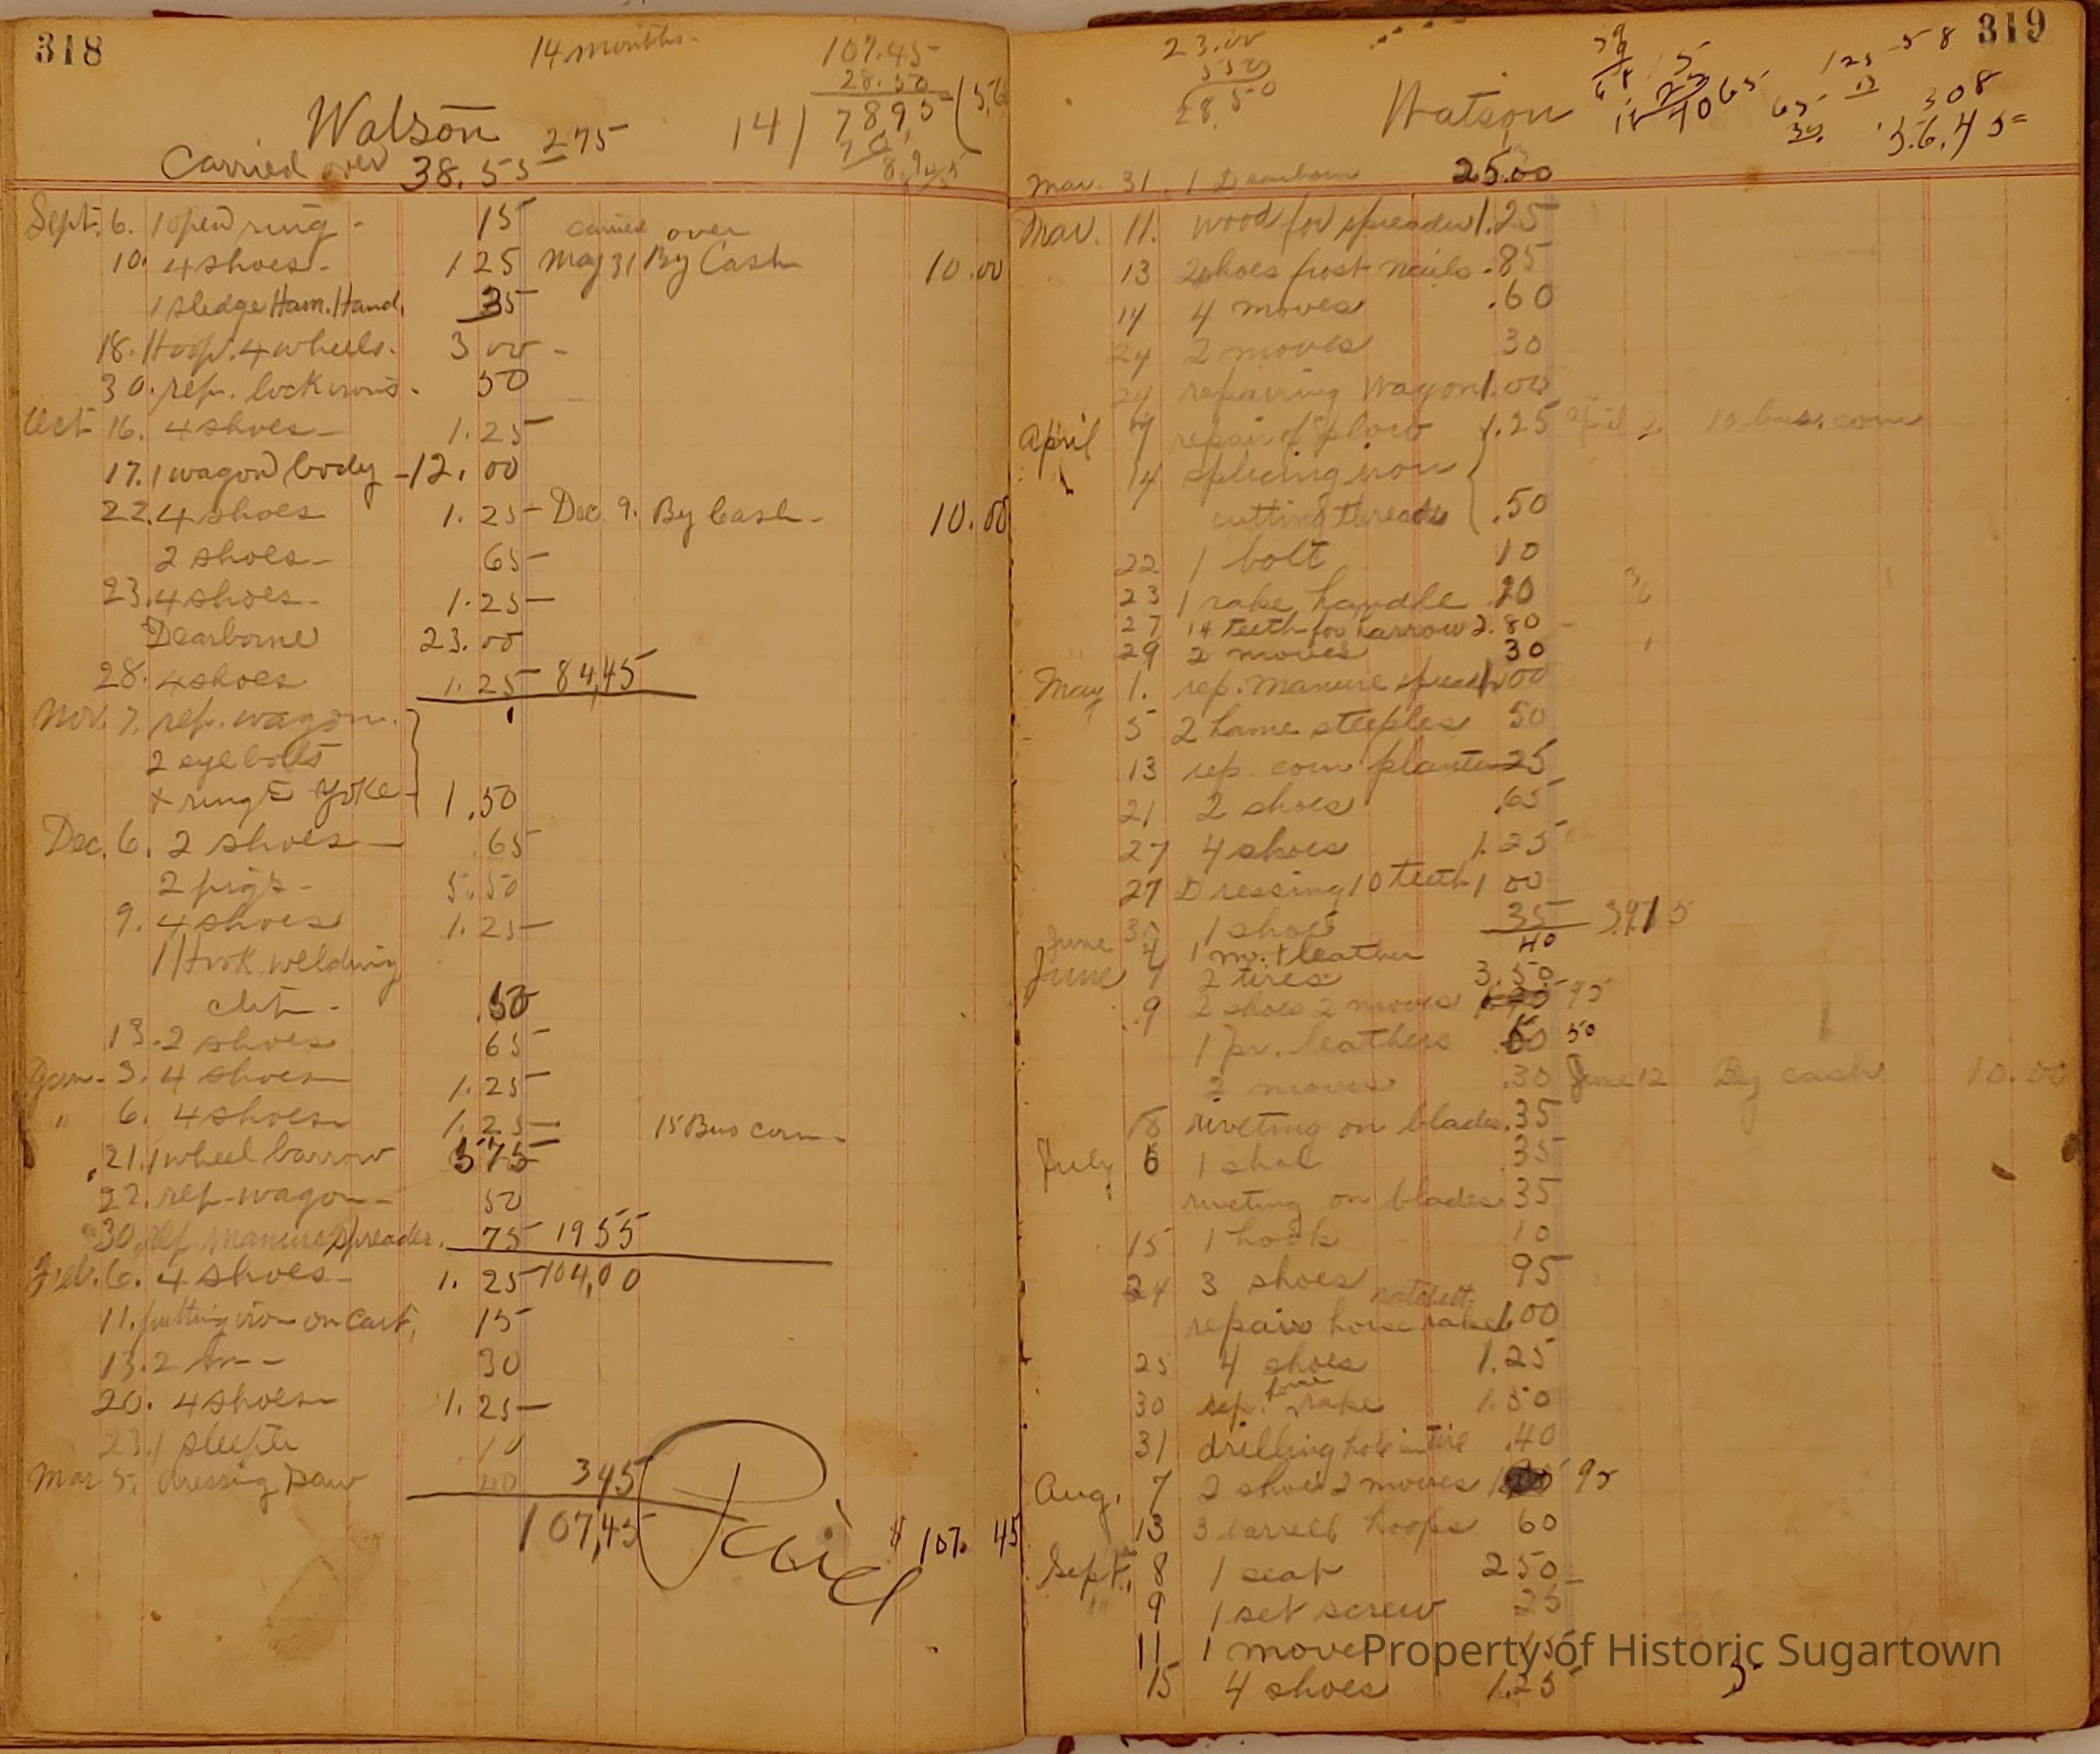 318
14 months.
107.45
28.50
14) 7895 (5.6
Watson
275
Carried over 38.55
Sept. 6. 1 open ring - 15
carried over
10. 4 shoes - 1 25 May 31 By Cash 10.00
1 sledge Ham. Hand. 35
18. Hoop. 4 wheels. 3 00 -
30. rep. lock irons. 50
Oct 16. 4 shoes - 1.25
17. 1 wagon body - 12.00
22. 4 shoes 1.25 - Dec. 9. By Cash - 10.00
2 shoes - 65
23. 4 shoes - 1.25
Dearborne 23.00
28. 4 shoes 1.25 84,45
Nov. 7. rep. wagon.
2 eye bolts
+ ring yoke 1.50
Dec. 6. 2 shoes - 65
2 pigs - 5.50
9. 4 shoes 1.25
1 Hook welding
50
13. 2 shoes 65
Jan. 3. 4 shoes 1.25
" 6. 4 shoes 1.25 15 Bus corn
21. 1 wheel barrow 3 75
22. rep. wagon - 50
30. rep. manure spreader. 75 19 55
Feb. 6. 4 shoes - 1.25 104,00
11. putting iron on Cart, 15
13. 2 30
20. 4 shoes 1.25
23. 1 10
Mar 5. dressing 40 345
107,45 Paid $ 107. 45
319
23.00
5 50
28.50
Watson
Mar. 31. 1 Dearborn 25.00
Mar. 11. wood for spreader 1.25
13 2 shoes frost nails .85
14 4 moves .60
24 2 moves 30
24 repairing wagon 1.00
April 7 repair of plow 1.25 April 2. 10 bus. corn
14 splicing iron
cutting threads .50
22 1 bolt 10
23 1 rake handle 20
27 14 teeth for harrow 2.80
29 2 moves 30
May 1. rep. manure spread 1 00
5 2 hame steeples 50
13 rep. corn planter 25
21 2 shoes .65
27 4 shoes 1.25
27 Dressing 10 teeth 1 00
30 1 shoe 35 39 15
June 4 1 m. + leather 40
June 7 2 tires 3.50
9 2 shoes 2 moves 95
1 pr. leathers 50
2 moves .30 June 12 By cash 10.00
18 riveting on blades .35
July 6 1 shoe 35
riveting on blades 35
15 1 hook 10
24 3 shoes 95
ratchett
repair horse rake 1.00
25 4 shoes 1.25
30 rep. horse rake 1.50
31 drilling hole in tire .40
Aug. 7 2 shoes 2 moves 95
13 3 barrell hoops 60
Sept. 8 1 seat 2 50
9 1 set screw 25
11 1 move 15
15 4 shoes 1.25
Property of Historic Sugartown